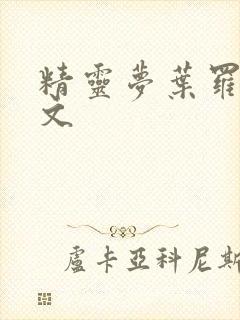 精靈夢葉羅
文
盧卡亞科尼斯